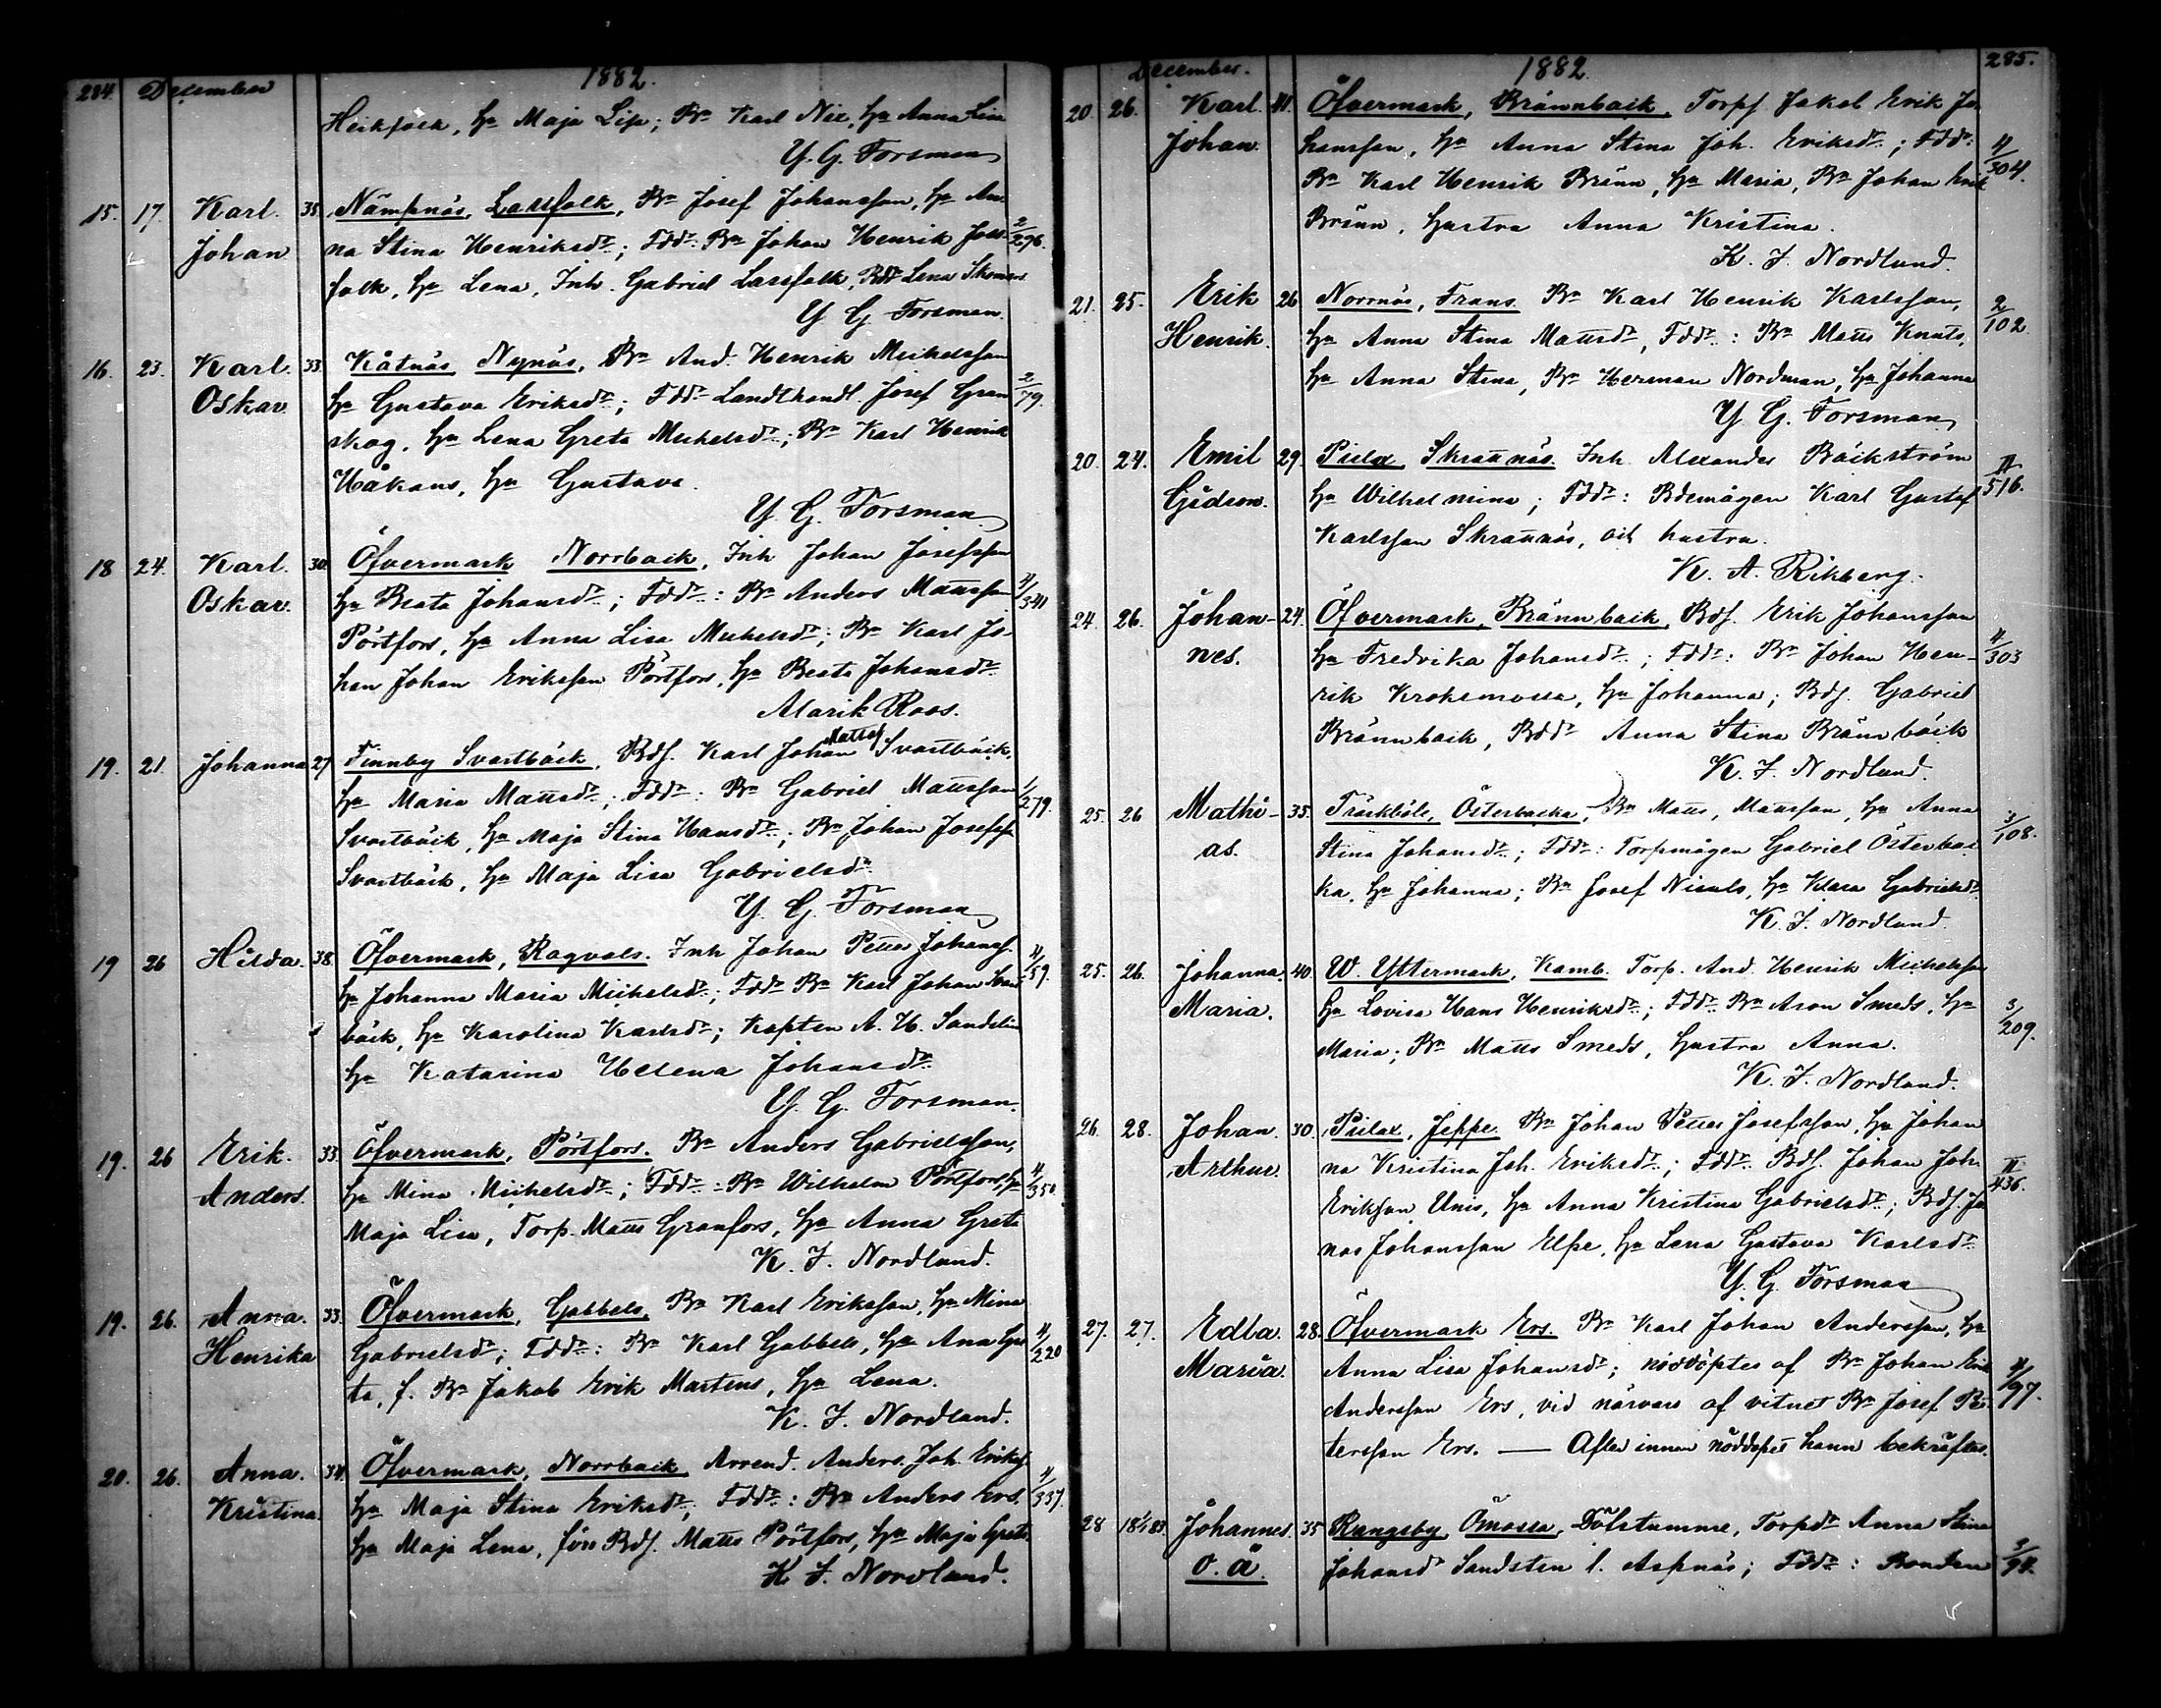 284. December 1882.
Heikfolk, Hu Maja Lisa; Bn Karl Nix, Hu Anna Lisa
Y. G. Forsman
15. 17. Karl 35. Nämpnäs, Lassfolk, Bn Josef Johansson, Hu An-
Johan na Stina Henriksdr; Fddr: Bn Johan Henrik Jossfolk 2/296.
folk, Hu Lena, Inh. Gabriel Lassfolk, Bddr Lena
Y G. Forsman.
16. 23. Karl 33. Kåtnäs Nynäs, Bn And. Henrik Mickelsson
Oskar Hu Gustava Eriksdr; Fddr Landthandl. Josef Gran 2/79.
skog, Hu Lena Greta Mickelsdr; Bn Karl Henrik
Håkans, Hu Gustava.
Y. G. Forsman
18 24. Karl. 30. Öfvermark Norrback, Inh Johan Josefsson
Oskar. Hu Beata Johansdr; Fddr: Bn Anders Mattsson 4/341
Pörtfors, Hu Anna Lisa Mickelsdr; Bn Karl Jo-
han Johan Eriksson Pörtfors, Hu Beata Johansdr
Alarik Roos.
19. 21. Johanna 27 Finnby Svartbäck, Bdf. Karl Johan Mattsf Svartbäck,
Hu Maria Mattsdr; Fddr: Bn Gabriel Mattsson 1/279.
Svartbäck, Hu Maja Stina Hansdr; Bn Johan Josefss
Svartbäck, Hu Maja Lisa Gabrielsdr
Y. G. Forsman
19 26 Hilda. 38. Öfvermark, Ragvals. Inh Johan Petter Johanss.
Hu Johanna Maria Mickelsdr; Fddr Bn Karl Johan Svart 4/59.
bäck, Hu Karolina Karlsdr; Kapten A. H. Sandelin
Hu Katarina Helena Johansdr
Y. G. Forsman.
19. 26 Erik. 33. Öfvermark, Pörtfors. Bn Anders Gabrielsson,
Anders. Hu Mina Mickelsdr; Fddr: Bn Wilhelm Pörtfors, Hu 4/350
Maja Lisa, Torp. Matts Granfors, Hu Anna Greta
K. J. Nordlund.
19. 26. Anna. 33. Öfvermark, Gabbels, Bn Karl Eriksson, Hu Mina
Henrika Gabrielsdr; Fddr: Bn Karl Gabbels, Hu Ana Gre 4/220
ta, f. Bn Jakob Erik Martens, Hu Lena.
K. J. Nordlund.
20. 26. Anna. 34. Öfvermark, Norrback Arrend. Anders Joh. Eriksf
Kristina. Hu Maja Stina Eriksdr; Fddr: Bn Anders Ers. 4/337.
Hu Maja Lena, förr Bdf. Matts Pörtfors, Hu Maja Greta.
K J. Nordlund.
December. 1882 285.
20. 26. Karl 41. Öfvermark, Brännback, Torpf Jakob Erik Jo-
Johan. hansson, Hu Anna Stina Joh. Eriksdr; Fddr: 4/304.
Bn Karl Henrik Bränn, Hu Maria, Bn Johan Erik
Bränn, Hustru Anna Kristina.
K. J. Nordlund.
21. 25. Erik 26 Norrnäs, Frans. Bn Karl Henrik Karlsson,
Henrik. Hu Anna Stina Mattsdr, Fddr: Bn Matts Knuts, 2/102
Hu Anna Stina, Bn Herman Nordman, Hu Johanna
Y G. Forsman
20. 24. Emil 29. Pielax Skrattnäs. Inh. Alexander Bäckström
Gideon. Hu Wilhelmina; Fddr: Bdemågen Karl Gustaf II/516.
Karlsson Skrattnäs, och hustru.
K. A. Rikberg.
24. 26. Johan- 24. Öfvermark, Brännback, Bdf. Erik Johansson
nes. Hu Fredrika Johansdr; Fddr: Bn Johan Hen- 4/303
rik Kroksmossa, Hu Johanna; Bdf. Gabriel
Brännback, Bddr Anna Stina Brännbäck
K. J. Nordlund.
25. 26 Mathi- 35. Träskböle, Österbacka, Bn Matts Mattsson, Hu Anna
as. Stina Johansdr; Fddr: Torpmågen Gabriel Österbac- 3/108.
ka, Hu Johanna; Bn Josef Nissuls, Hu Klara Gabrielsdr
K. J. Nordlund.
25. 26. Johanna 40. W. Yttermark, Kamb. Torp. And. Henrik Mickelsson
Maria. Hu Lovisa Hans Henriksdr; Fddr Bn Aron Smeds, Hu 3/209.
Maria; Bn Matts Smeds, Hustru Anna.
K. J. Nordlund.
26. 28. Johan. 30. Pielax, Jeppe. Bn Johan Petter Josefsson, Hu Johan
Arthur. na Kristina Joh. Eriksdr; Fddr. Bdf. Johan Joh. II/436.
Eriksson Unis, Hu Anna Kristina Gabrielsdr; Bdf. Jo
nas Johansson Elfse, Hu Lena Gustava Karlsdr
Y. G. Forsman
27. 27. Edla. 28. Öfvermark Ers. Bn Karl Johan Andersson, Hu
Maria. Anna Lisa Johansdr; nöddöptes af Bn Johan Erik 4/97.
Andersson Ers, vid närvaro af vitnet Bn Josef Pet-
tersson Ers. — Afled innan nöddopet hann bekräftas.
28 18/1 83. Johannes. 35 Rangsby, Ömossa, Döfstumme, Torpdr Anna Stina
o. ä. Johansd Sandsten l. Aspnäs; Fddr: Bonden 3/94.